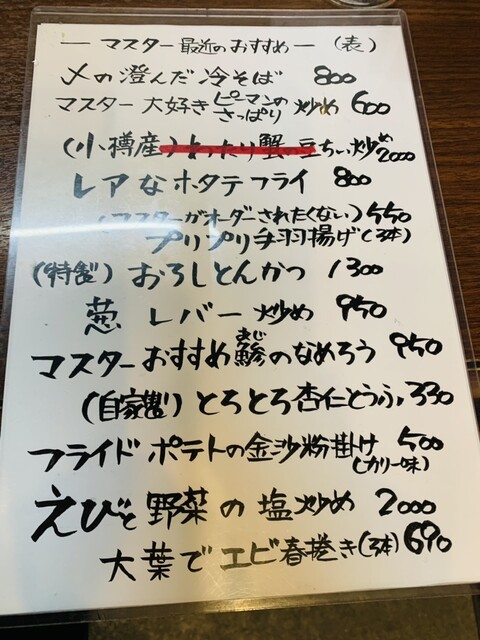 — マスター最近のおすすめ — (表)
〆の澄んだ冷そば 800
マスター大好きピーマンのさっぱり炒め 600
(小樽産)わたり蟹の豆ちぃ炒め 2000
レアなホタテフライ 800
(マスターがオーダーされたくない) 550
プリプリ手羽揚げ(3本)
(特製) おろしとんかつ 1300
葱レバー炒め 950
マスターおすすめ鯵のなめろう 950
あじ
(自家製) とろとろ杏仁とうふ 330
フライドポテトの金沙粉掛け 500
(カリー味)
えびと野菜の塩炒め 2000
大葉でエビ春捲き(3本) 690